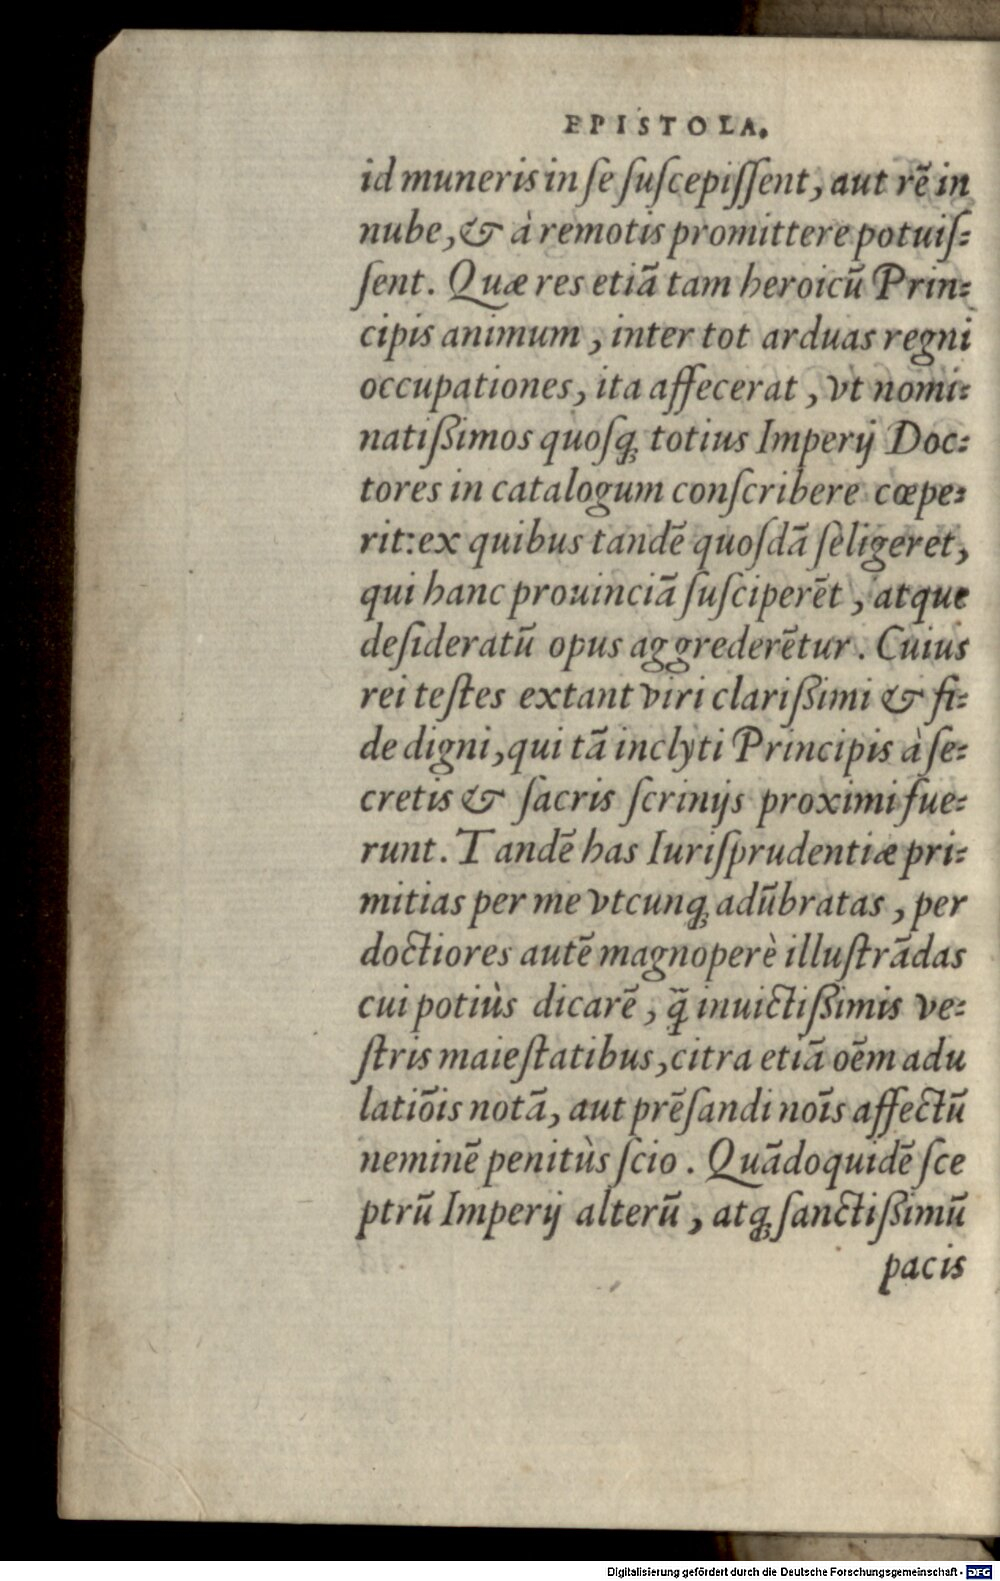 EPISTOLA.
id muneris in ſe ſuſcepiſſent, aut rẽ in
nube, & à remotis promittere potuiſ=
ſent. Quæ res etiã tam heroicũ Prin=
cipis animum, inter tot arduas regni
occupationes, ita affecerat, vt nomi=
natißimos quoſq́ꝫ totius Imperij Doc=
tores in catalogum conſcribere cœpe=
rit: ex quibus tandẽ quoſdã ſeligeret,
qui hanc prouinciã ſuſciperẽt, atque
deſideratũ opus aggrederẽtur. Cuius
rei teſtes extant viri clarißimi & fi=
de digni, qui tã inclyti Principis à ſe=
cretis & ſacris ſcrinijs proximi fue=
runt. Tandẽ has Iuriſprudentiæ pri=
mitias per me vtcunqꝫ adũbratas, per
doctiores autẽ magnoperè illuſtrãdas
cui potiùs dicarẽ, q̃ inuictißimis ve=
ſtris maieſtatibus, citra etiã oẽm adu
latiõis notã, aut prẽſandi noĩs affectũ
neminẽ penitùs ſcio. Quãdoquidẽ ſce
ptrũ Imperij alterũ, atqꝫ ſanctißimũ
pacis
Digitalisierung gefördert durch die Deutsche Forschungsgemeinschaft - DFG